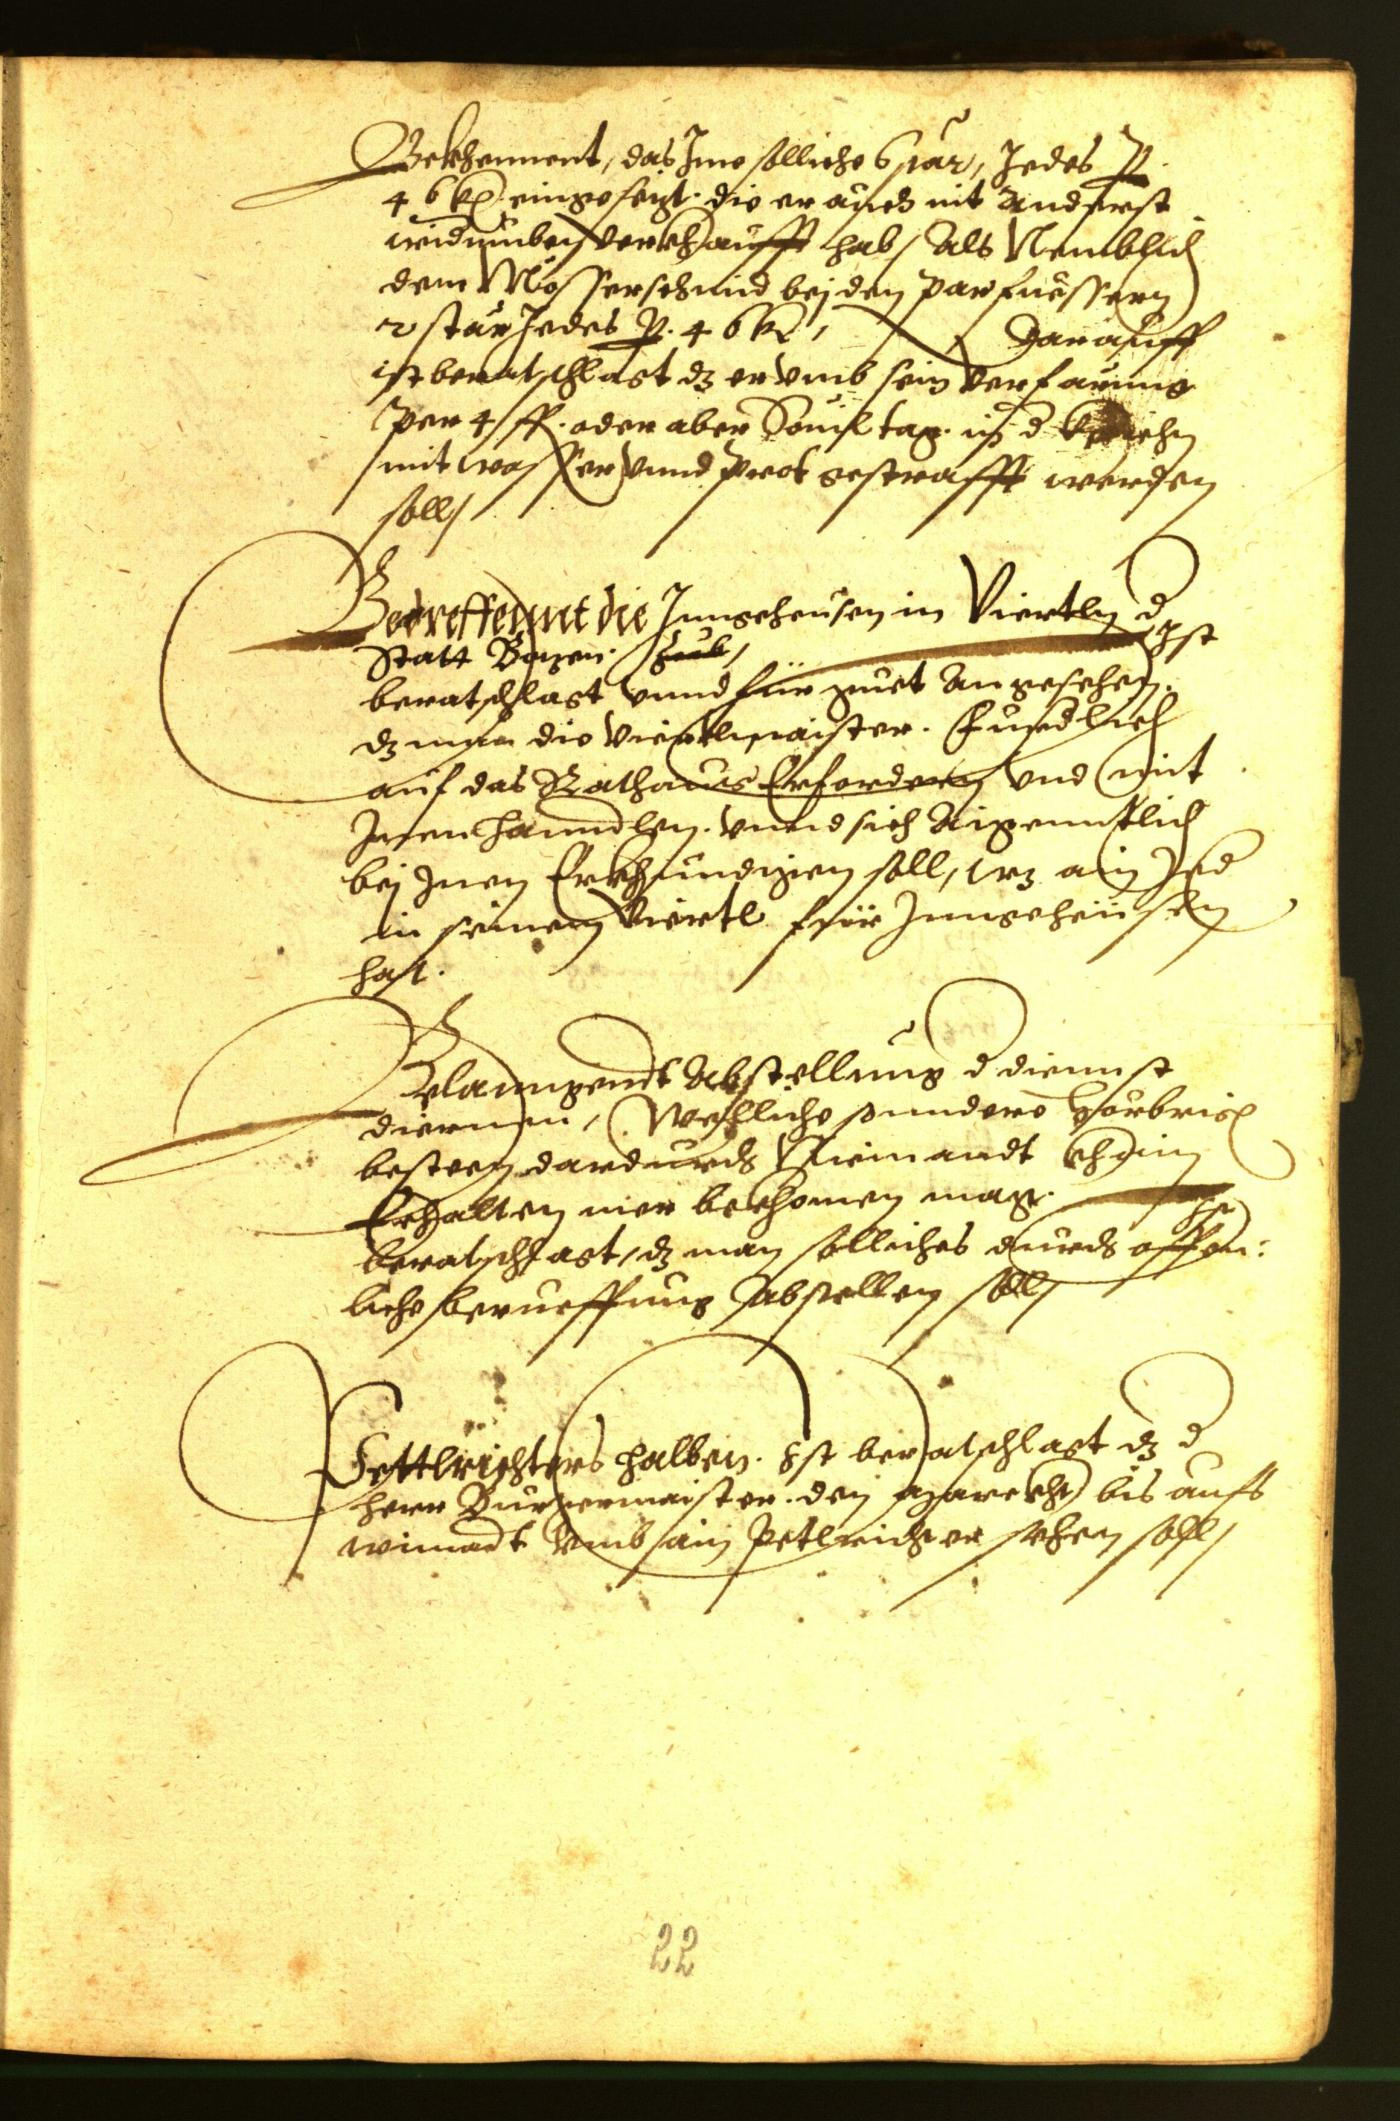 Bekhennent, das Ime solliche 6 stär, Jedes p.
4 6 kr. eingesezt. die er auch nit annderst
widerumben verkhaufft hab, Als Nemblich
dem Mösserschmid bej den parfuessern
2 stär Jedes p. 4 6 kr, Darauff
ist beratschlagt dz er vmb sein verfarung
per 4 ff. oder aber souil tag. in d
mit wasser vnnd prot gestrafft werden
soll,
Betreffennt die Inngeheusen in Viertln d
Statt Bozen. Ist
beratschlagt vnnd für guet angesehen.
dz man die Viertlmaister. fürdlich
auf das Rathaus Erfordern vnd mit
Inen hanndlen. vnnd sich aigenntlich
bej Inen Erkhundigen soll, wz ain Jed
in seinem Viertl für Inngeheüsen
hat.
Belanngendt Abstellung d diennst
diernen, Welliche sunndere
besteen dardurch Niemandt khain
Erhalten mer bekhomen mag. Ist
beratschlagt, dz man solliches durch offen:
liche berueffung abstellen soll,
Pettlrichters halben. Ist beratschlagt dz d
herr Burgermaister. den bis aufs
wimadt vmb ain Petlrichter sehen soll,
22